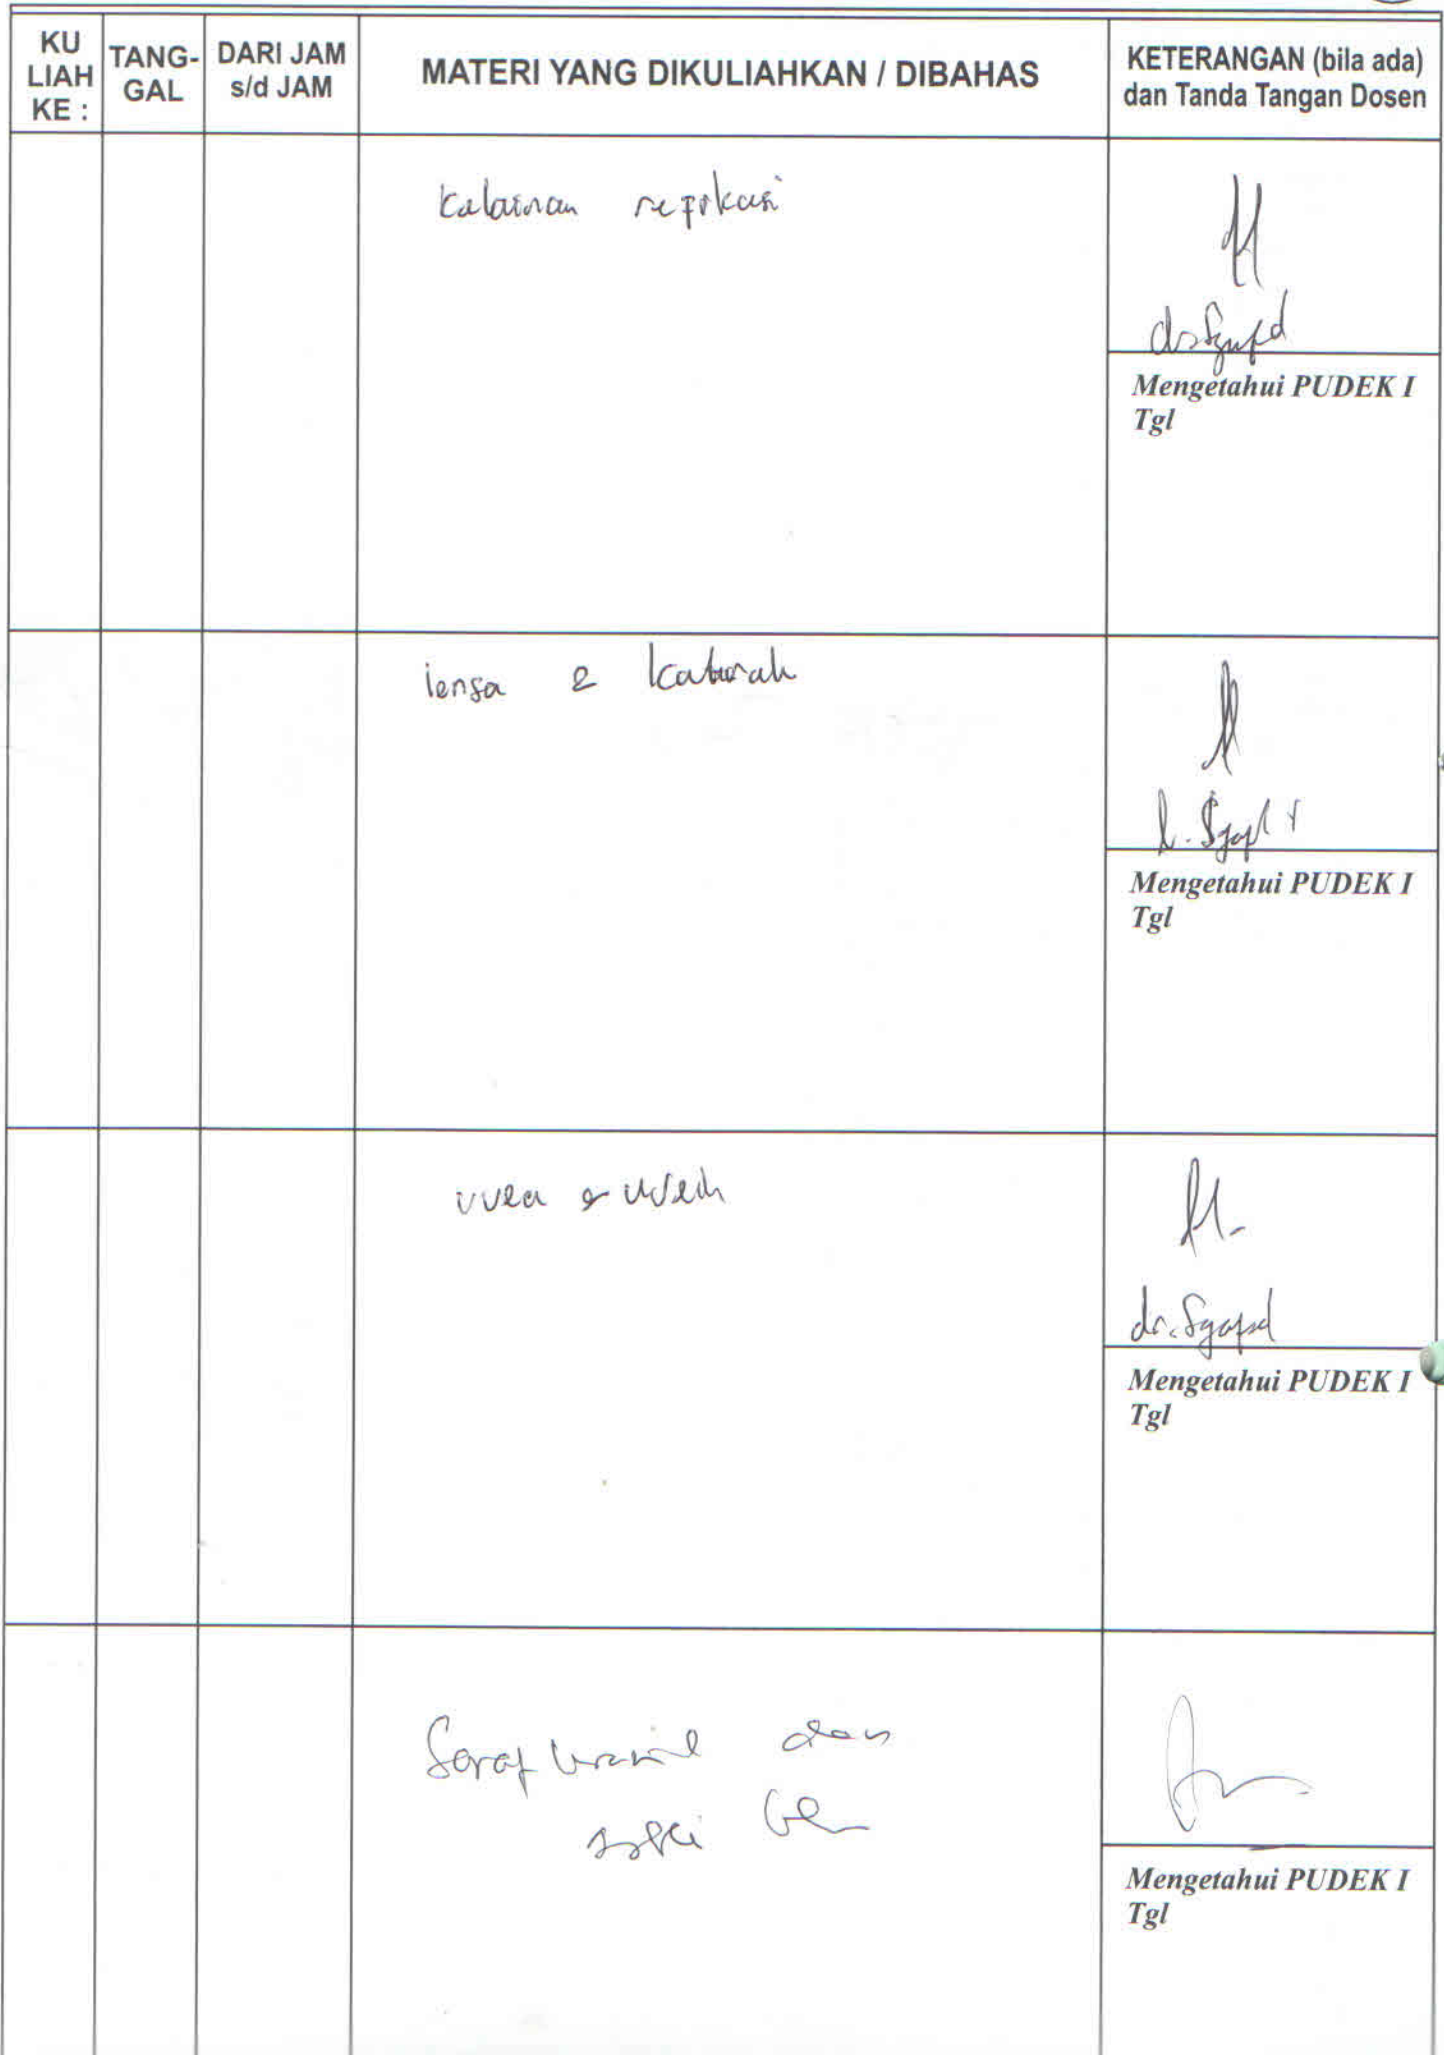 KU LIAH KE : TANG-GAL DARI JAM s/d JAM MATERI YANG DIKULIAHKAN / DIBAHAS KETERANGAN (bila ada) dan Tanda Tangan Dosen
Kelainan refraksi
Mengetahui PUDEK I
Tgl
lensa & Katarak
Mengetahui PUDEK I
Tgl
uvea &
dr.
Mengetahui PUDEK I
Tgl
Saraf dan
Mengetahui PUDEK I
Tgl